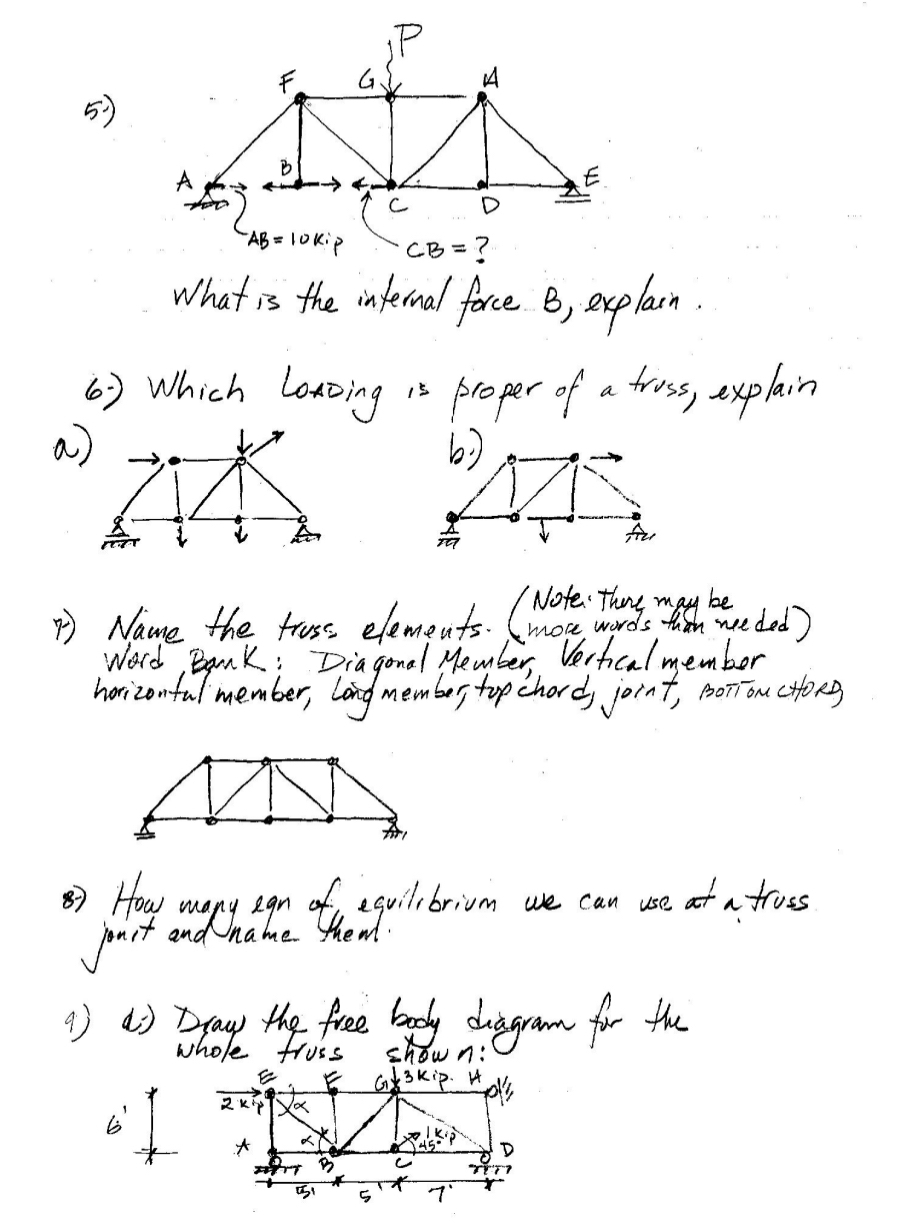 P
F G H
5.)
A B C D E
AB = 10 Kip CB = ?
What is the internal force B, explain.
6.) Which LOADing is proper of a truss, explain
a) b.)
7) Name the truss elements. (Note: There may be
more words than needed)
Word Bank: Diagonal Member, Vertical member
horizontal member, Long member, top chord, joint, BOTTOM CHORD,
8.) How many eqn of equilibrium we can use at a truss
jonit and name them.
9) a.) Draw the free body diagram for the
whole truss shown:
E F G 3 Kip. H
2 Kip α
6'
α 1 Kip
45°
A B C D
5' 5' 7'